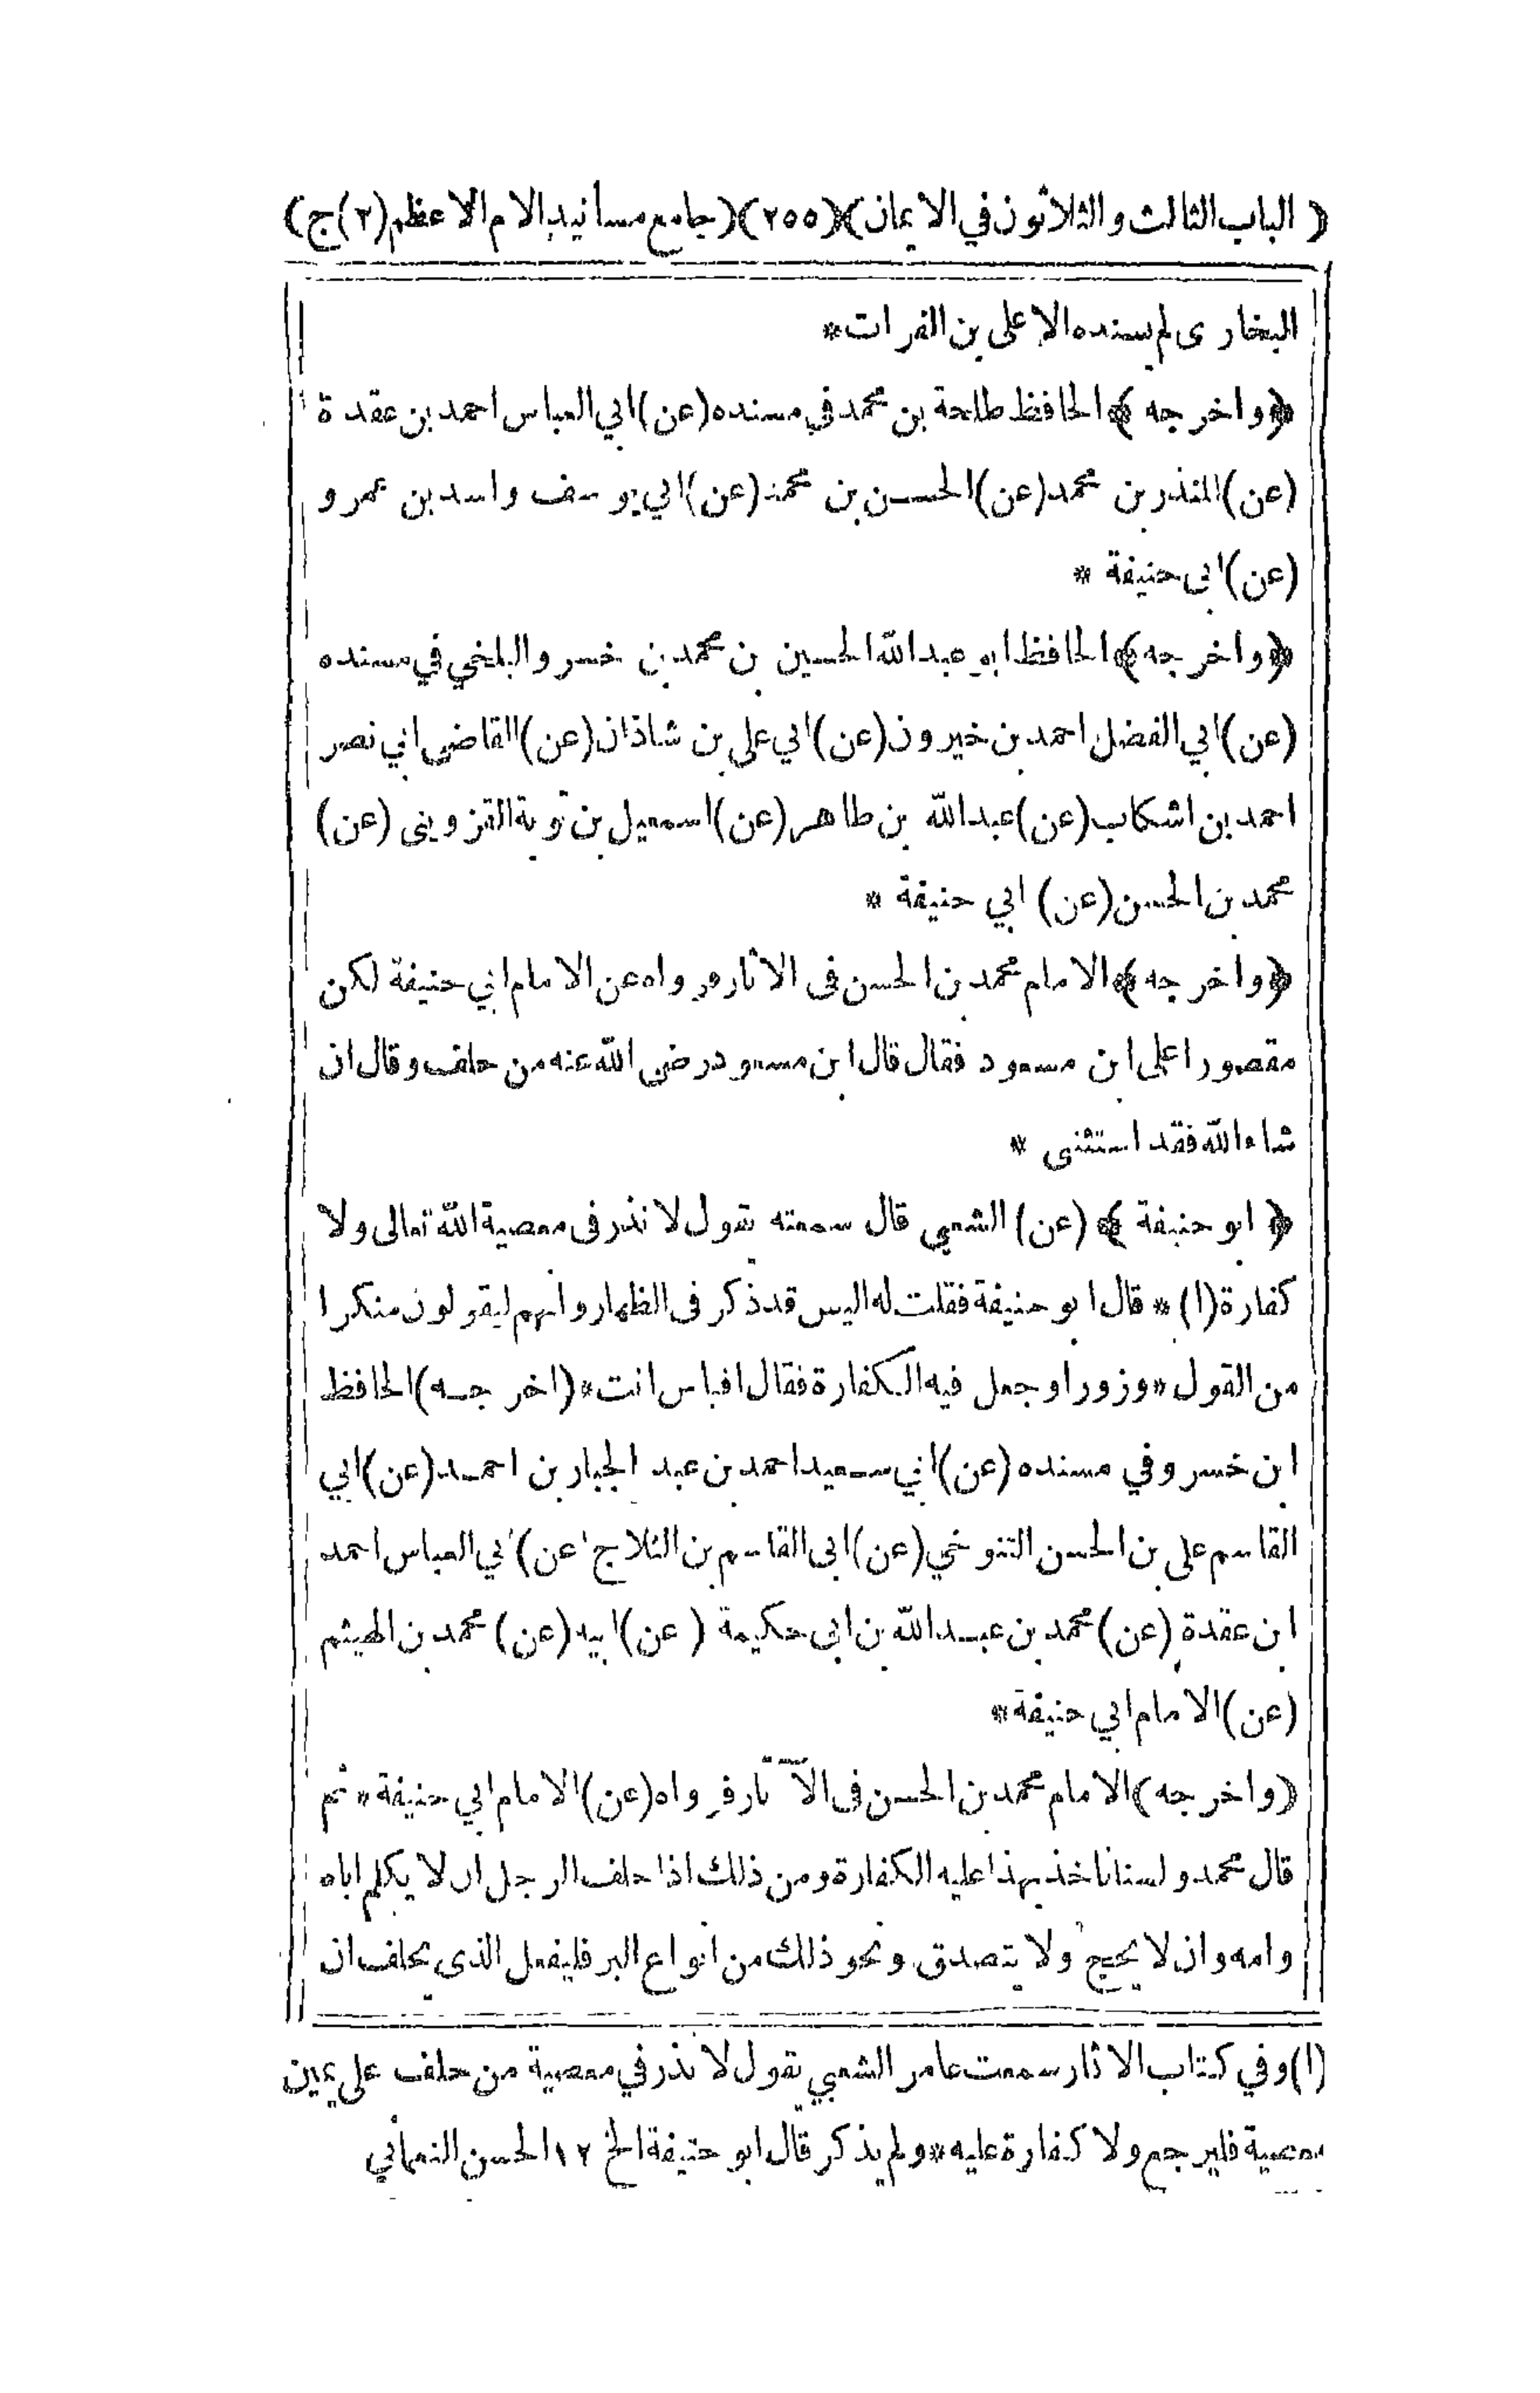 ( الباب الثالث والثلاثون في الايمان)(٢٥٥)(جامع مسانيد الامام الاعظم(٢)ج)
البخارى لم يسنده الا على بن الفرات*
﴿واخرجه﴾ الحافظ طلحة بن محمد في مسنده (عن) ابي العباس احمد بن عقدة
(عن) المنذر بن محمد (عن) الحسن بن محمد (عن) ابي يوسف واسد بن عمرو
(عن) ابى حنيفة *
﴿واخرجه﴾ الحافظ ابو عبد الله الحسين بن محمد بن خسرو البلخي في مسنده
(عن) ابي الفضل احمد بن خيرون (عن) ابي على بن شاذان (عن) القاضى ابي نصر
احمد بن اشكاب (عن) عبد الله بن طاهر (عن) اسمعيل بن توبة القزوينى (عن)
محمد بن الحسن (عن) ابي حنيفة *
﴿واخرجه﴾ الامام محمد بن الحسن فى الاثار ورواه عن الامام ابي حنيفة لكن
مقصورا على ابن مسعود فقال قال ابن مسعود رضى الله عنه من حلف وقال ان
شاء الله فقد استثنى *
﴿ ابو حنيفة ﴾ (عن) الشعبي قال سمعته يقول لا نذر فى معصية الله تعالى ولا
كفارة(١) * قال ابو حنيفة فقلت له اليس قد ذكر فى الظهار وانهم ليقولون منكرا
من القول * وزورا وجعل فيه الكفارة فقال اقياس انت * (اخرجه) الحافظ
ابن خسرو في مسنده (عن) ابي سعيد احمد بن عبد الجبار بن احمد (عن) ابي
القاسم على بن الحسن التنوخي (عن) ابى القاسم بن الثلاج (عن) ابي العباس احمد
ابن عقدة (عن) محمد بن عبد الله بن ابى حكيمة (عن) ابيه (عن) محمد بن الهيثم
(عن) الامام ابي حنيفة *
(واخرجه) الامام محمد بن الحسن فى الآثار فرواه (عن) الامام ابي حنيفة * ثم
قال محمد ولسنا ناخذ بهذا عليه الكفارة ومن ذلك اذا حلف الرجل ان لا يكلم اباه
وامه وان لا يحج ولا يتصدق ونحو ذلك من انواع البر فليفعل الذى يحلف ان
(١) وفي كتاب الاثار سمعت عامر الشعبي يقول لا نذر في معصية من حلف على يمين
معصية فليرجع ولا كفارة عليه * ولم يذكر قال ابو حنيفة الخ ١٢ الحسن النعمانى